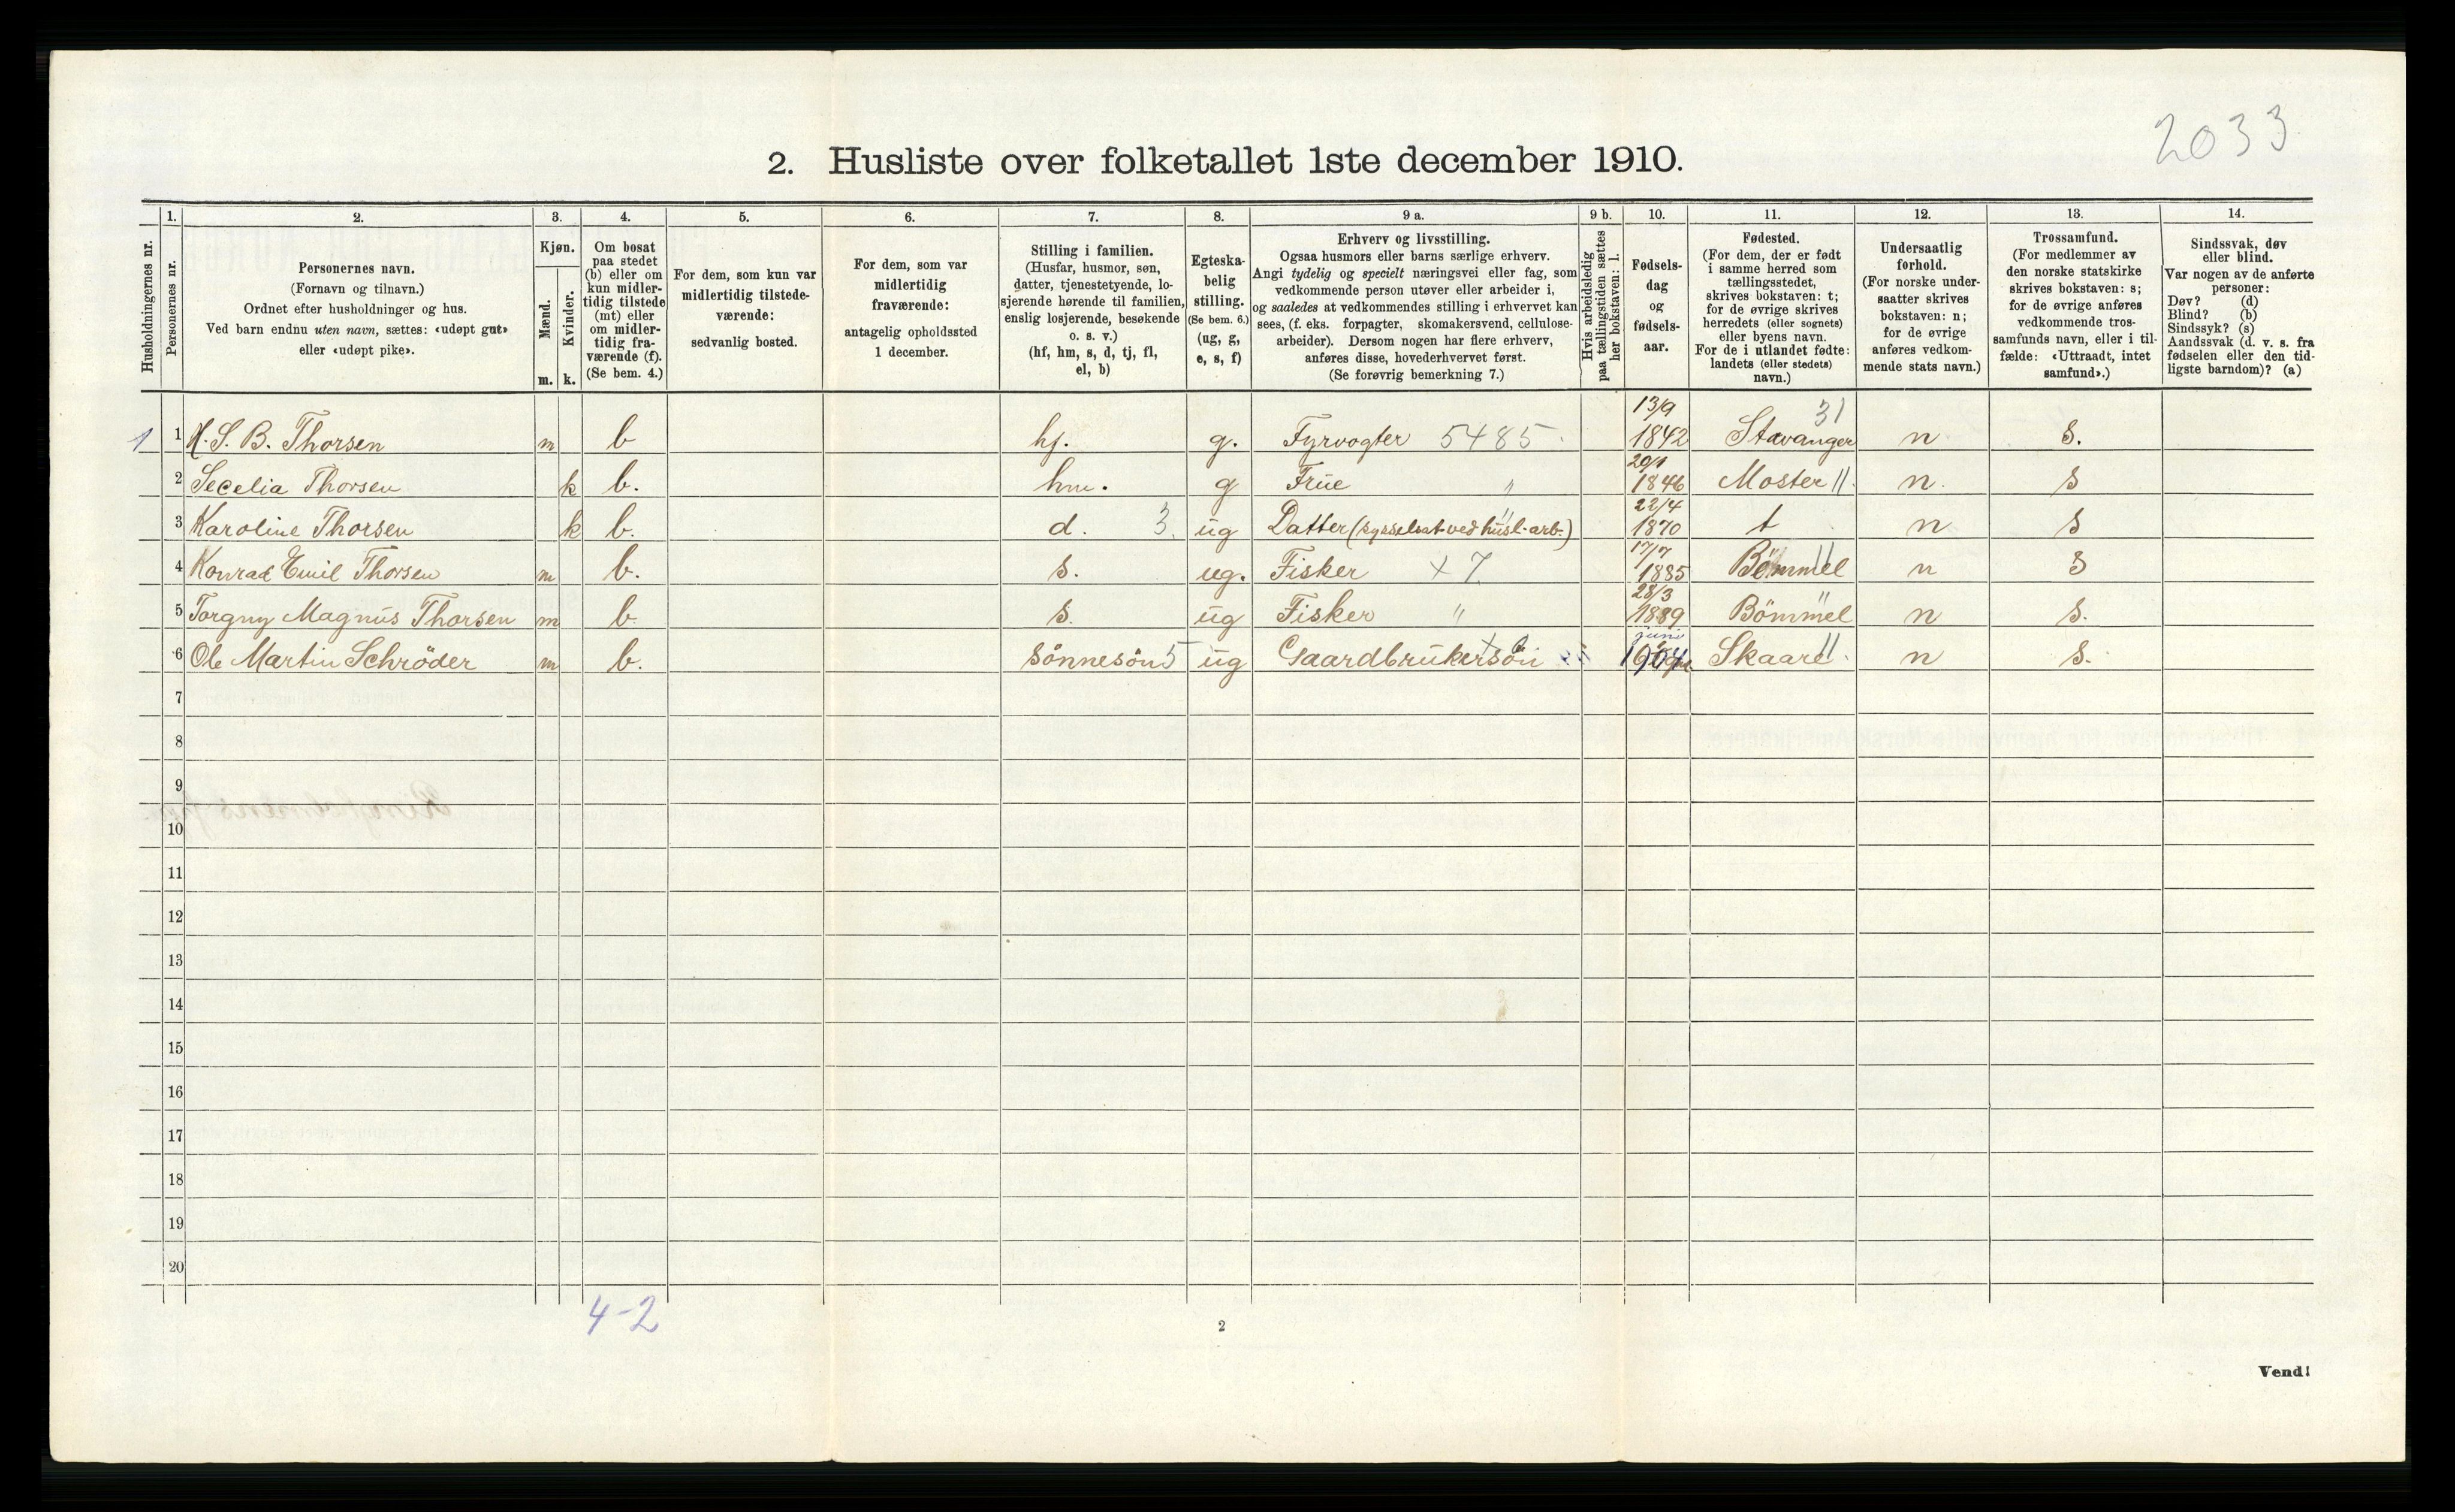 2033
2. Husliste over folketallet 1ste december 1910.
1. 2. 3. 4. 5. 6. 7. 8. 9 a. 9 b. 10. 11. 12. 13. 14.
Husholdningernes nr.
Personernes nr.
Personernes navn.
(Fornavn og tilnavn.)
Ordnet efter husholdninger og hus.
Ved barn endnu uten navn, sættes: «udøpt gut»
eller «udøpt pike».
Kjøn.
Mænd.
Kvinder.
m. k.
Om bosat
paa stedet
(b) eller om
kun midler-
tidig tilstede
(mt) eller
om midler-
tidig fra-
værende (f).
(Se bem. 4.)
For dem, som kun var
midlertidig tilstede-
værende:
sedvanlig bosted.
For dem, som var
midlertidig
fraværende:
antagelig opholdssted
1 december.
Stilling i familien.
(Husfar, husmor, søn,
datter, tjenestetyende, lo-
sjerende hørende til familien,
enslig losjerende, besøkende
o. s. v.)
(hf, hm, s, d, tj, fl,
el, b)
Egteska-
belig
stilling.
(Se bem. 6.)
(ug, g,
e, s, f)
Erhverv og livsstilling.
Ogsaa husmors eller barns særlige erhverv.
Angi tydelig og specielt næringsvei eller fag, som
vedkommende person utøver eller arbeider i,
og saaledes at vedkommendes stilling i erhvervet kan
sees, (f. eks. forpagter, skomakersvend, cellulose-
arbeider). Dersom nogen har flere erhverv,
anføres disse, hovederhvervet først.
(Se forøvrig bemerkning 7.)
Hvis arbeidsledig
paa tællingstiden sættes
her bokstaven: l.
Fødsels-
dag
og
fødsels-
aar.
Fødested.
(For dem, der er født
i samme herred som
tællingsstedet,
skrives bokstaven: t;
for de øvrige skrives
herredets (eller sognets)
eller byens navn.
For de i utlandet fødte:
landets (eller stedets)
navn.)
Undersaatlig
forhold.
(For norske under-
saatter skrives
bokstaven: n;
for de øvrige
anføres vedkom-
mende stats navn.)
Trossamfund.
(For medlemmer av
den norske statskirke
skrives bokstaven: s;
for de øvrige anføres
vedkommende tros-
samfunds navn, eller i til-
fælde: «Uttraadt, intet
samfund».)
Sindssvak, døv
eller blind.
Var nogen av de anførte
personer:
Døv? (d)
Blind? (b)
Sindssyk? (s)
Aandssvak (d. v. s. fra
fødselen eller den tid-
ligste barndom)? (a)
13/9 31
1 1 H. S. B. Thorsen m b hf. g. Fyrvogter 5485. 1842 Stavanger n s.
20/1
2 Secelia Thorsen k b. hm. g Früe " 1846 Moster 11. n. s
22/4
3 Karoline Thorsen k b. d. 3. ug Datter (sysselsat ved husl-arb.) " 1870 t n s
17/7
4 Konrad Emil Thorsen m b. s. ug. Fisker x 7 1885 Bömmel 11 n s
28/3
5 Torgny Magnus Thorsen m b. s. ug Fisker " 1889 Bömmel " n s.
juni
6 Ole Martin Schröder m b. sönnesön 5 ug Gaardbrukersön x 1904 Skaare 11. n s.
7
8
9
10
11
12
13
14
15
16
17
18
19
20
4-2
2
Vend!